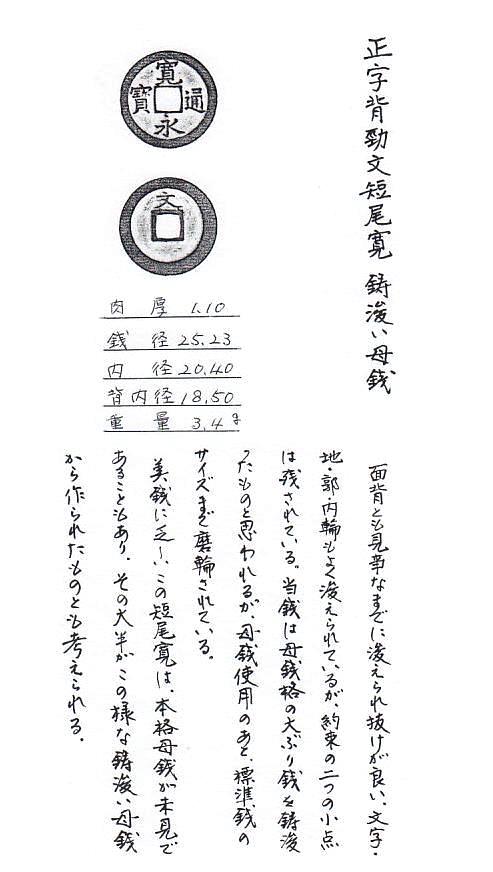 正字背勁文短尾寛 鋳浚い母銭
寛永通寳
文
肉厚 1.10
銭径 25.23
内径 20.40
背内径 18.50
重量 3.4g
面背とも見事なまでに浚えられ抜けが良い、文字・
地・郭・内輪もよく浚えられているが、約束の二つの小点
は残されている。当銭は母銭格の大ぶり銭を鋳浚
ったものと思われるが、母銭使用のあと、標準銭の
サイズまで磨輪されている。
美銭に乏しいこの短尾寛は、本格母銭が未見で
あることもあり、その大半がこの様な鋳浚い母銭
から作られたものとも考えられる。